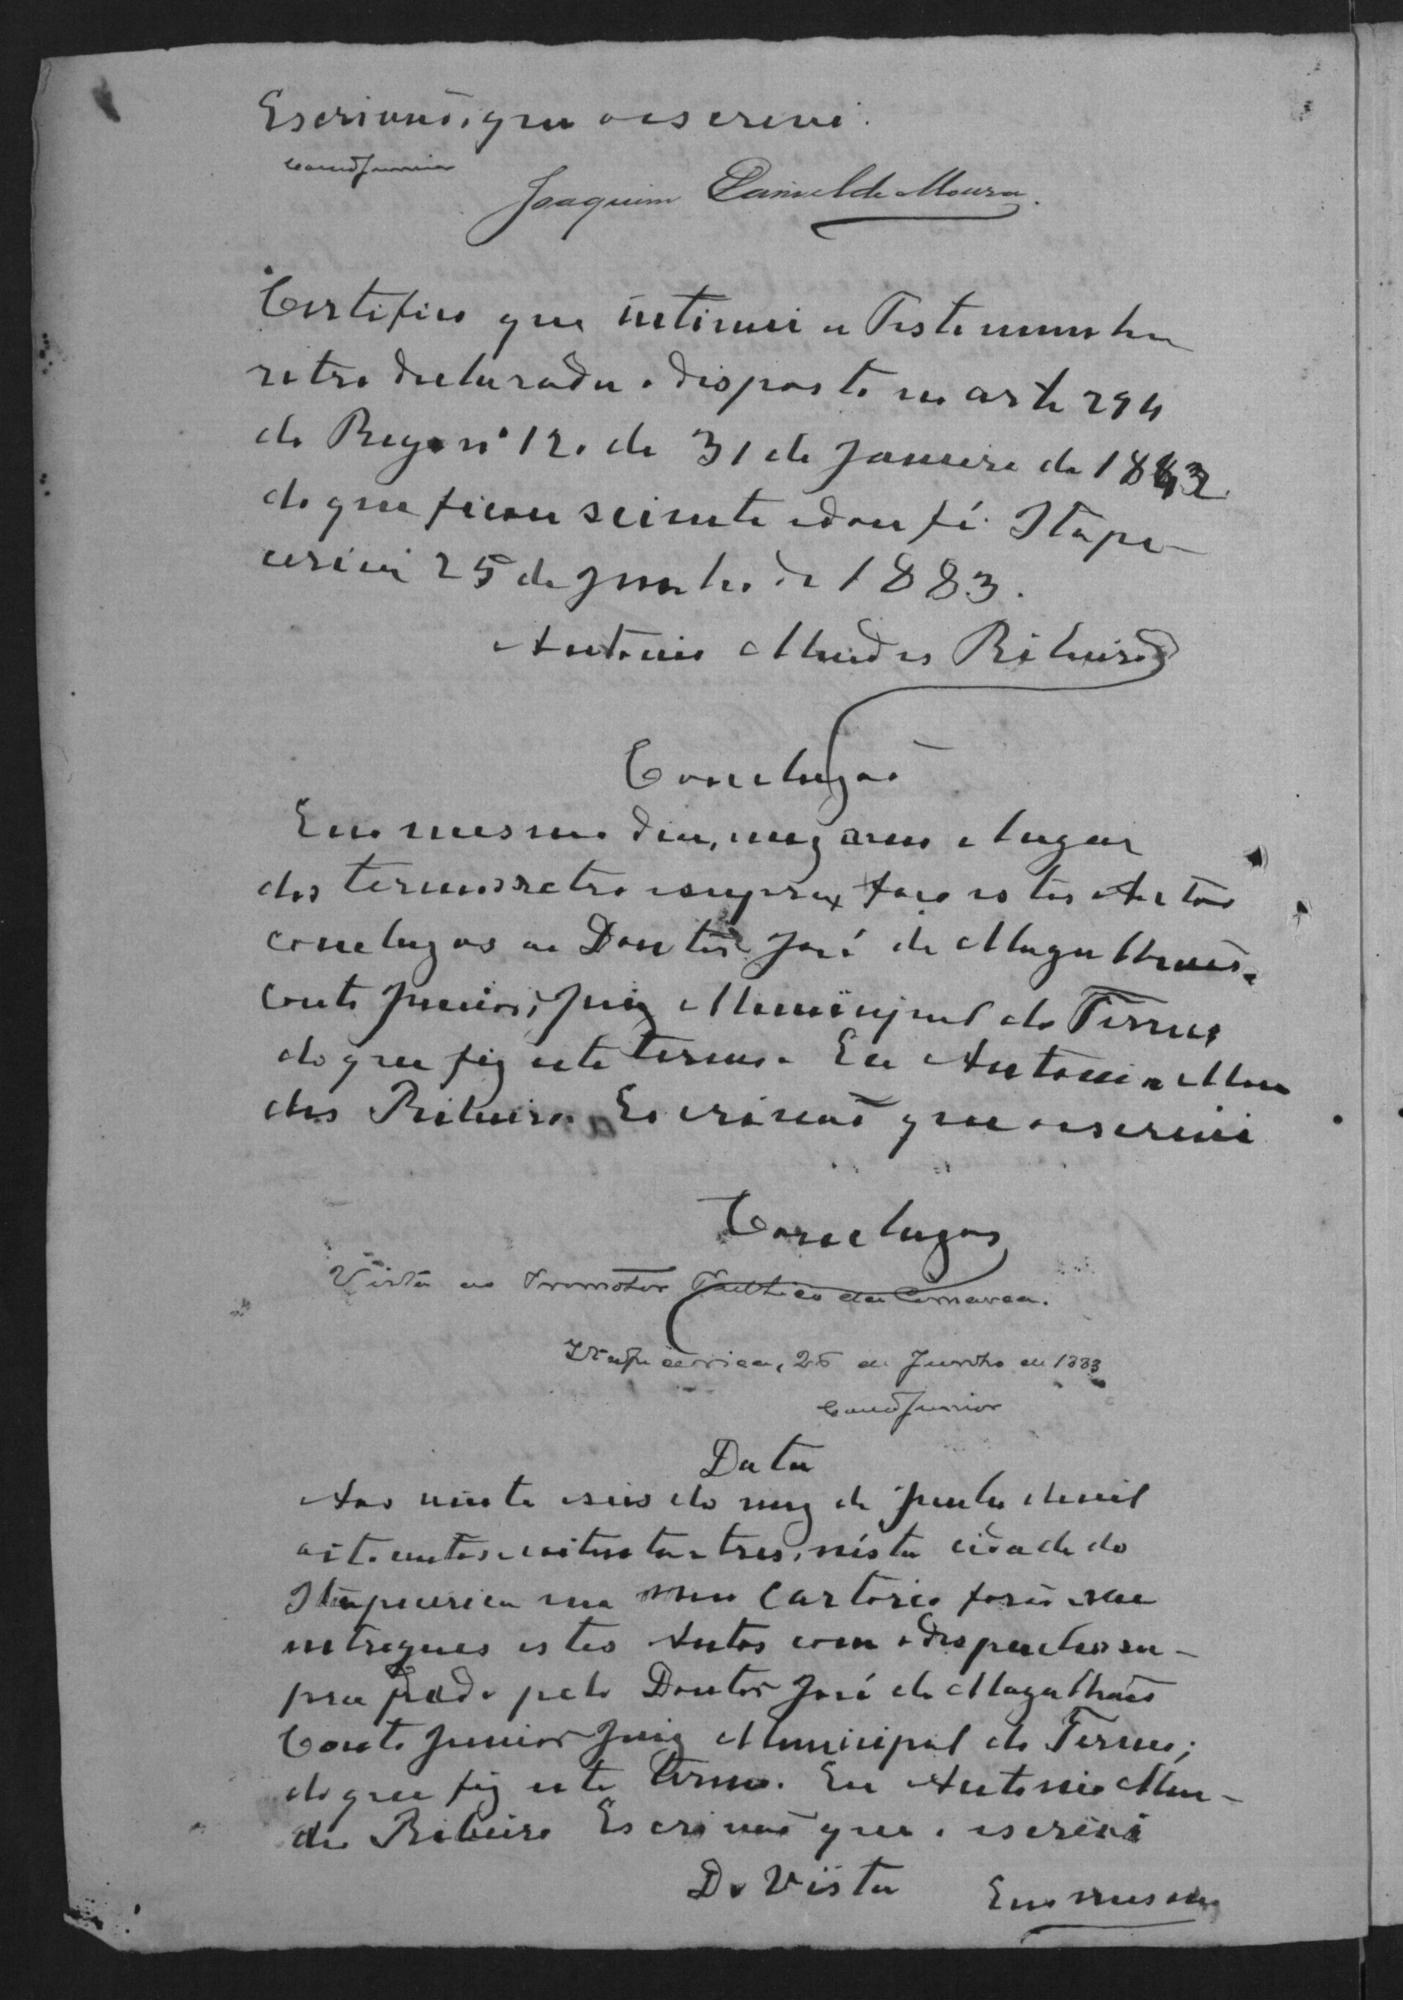 Escrivaõ, que o escrevi.
Couto Junior
Joaquim Daniel de Moura.
Certifico que intimei a Testemunha
retro declarada o disposto no art. 294
do Reg. nº 120 de 31 de Janeiro de 1842
do que ficou sciente e dou fé. Itape-
cerica 25 de Junho de 1883.
Antonio Mendes Ribeiro
Conclusaõ
E no mesmo dia, mez anno e lugar
dos termos retro faço estes Autos
concluzos ao Doutor José de Magalhaes
Couto Junior, Juiz Municipal do Termo;
do que fiz este termo. Eu Antonio Men
des Ribeiro Escrivaõ que o escrevi
Concluzos
Vista ao Promotor Publico da Comarca.
Itapecerica, 26 de Junho de 1883
Couto Junior
Data
Aos vinte e seis do mez de Junho de mil
oitocentos e oitenta e tres, nésta cidade do
Itapecerica em meu Cartorio foraõ me
entregues estes Autos com o despacho su-
pra pelo Doutor José de Magalhães
Couto Junior Juiz Municipal do Termo;
do que fiz este termo. Eu Antonio Men-
des Ribeiro Escrivaõ que o escrevi
De Vista E no mesmo